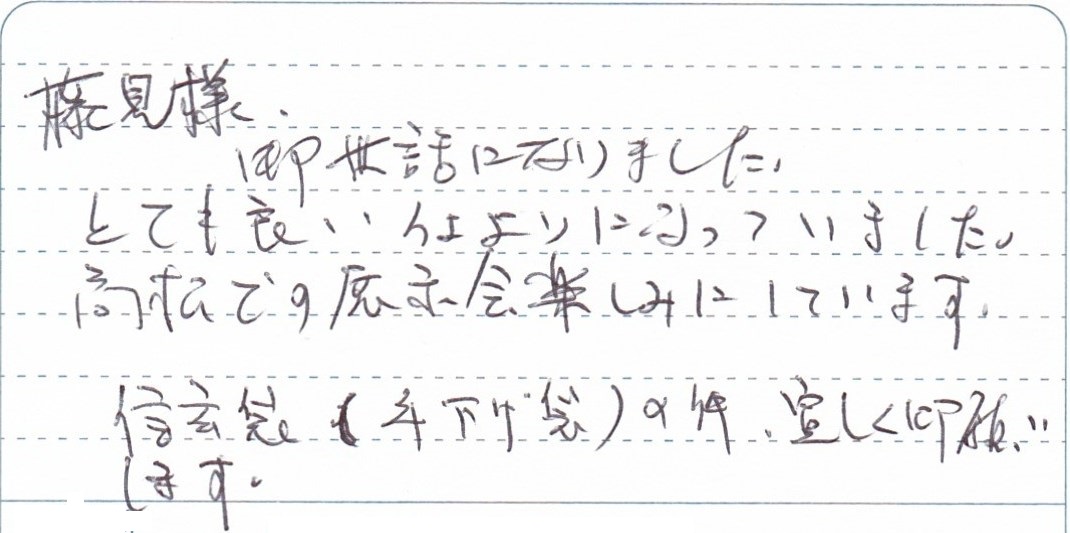 藤見様.
御世話になりました。
とても良い仕上よりになっていました。
高松での展示会楽しみにしています。
信玄袋(手下げ袋)の件、宜しく御願い
します。